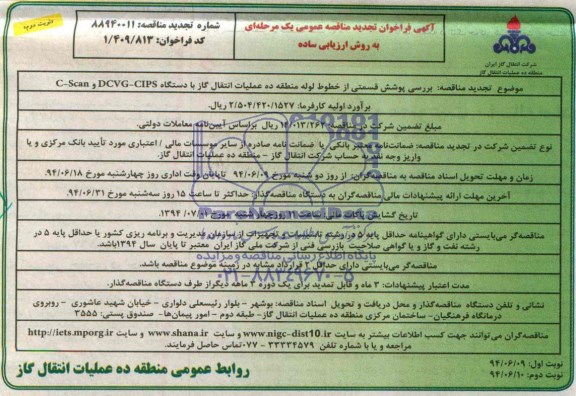 نوبت دوم
آگهی فراخوان تجدید مناقصه عمومی یک مرحله‌ای
به روش ارزیابی ساده
شماره تجدید مناقصه: ۸۸۹۴۰۰۱۱
کد فراخوان: ۱/۴۰۹/۸۱۳
شرکت انتقال گاز ایران
منطقه ده عملیات انتقال گاز
موضوع تجدید مناقصه: بررسی پوشش قسمتی از خطوط لوله منطقه ده عملیات انتقال گاز با دستگاه DCVG-CIPS و C-Scan
برآورد اولیه کارفرما: ۲/۵۰۴/۴۲۰/۱۵۲۷ ریال.
مبلغ تضمین شرکت در مناقصه: ریال براساس آیین‌نامه معاملات دولتی.
نوع تضمین شرکت در تجدید مناقصه: ضمانت‌نامه معتبر بانکی یا ضمانت نامه صادره از سایر موسسات مالی / اعتباری مورد تأیید بانک مرکزی و یا
واریز وجه نقد به حساب شرکت انتقال گاز - منطقه ده عملیات انتقال گاز.
زمان و مهلت تحویل اسناد مناقصه به مناقصه‌گران: از روز دو شنبه مورخ ۹۴/۰۶/۰۹ تا پایان وقت اداری روز چهارشنبه مورخ ۹۴/۰۶/۱۸
آخرین مهلت ارائه پیشنهادات مالی مناقصه‌گران به دستگاه مناقصه‌گذار: حداکثر تا ساعت ۱۵ روز سه‌شنبه مورخ ۹۴/۰۶/۳۱
تاریخ گشایش پاکات مالی: ساعت ۱۱ روز چهارشنبه مورخ ۱۳۹۴/۰۷/۰۱
مناقصه‌گر می‌بایستی دارای گواهینامه حداقل پایه ۵ در رشته تاسیسات و تجهیزات از سازمان مدیریت و برنامه ریزی کشور یا حداقل پایه ۵ در
رشته نفت و گاز و یا گواهی صلاحیت بازرسی فنی از شرکت ملی گاز ایران معتبر تا پایان سال ۱۳۹۴باشد.
مناقصه‌گر می‌بایستی دارای حداقل ۲ قرارداد مشابه در زمینه موضوع مناقصه باشد.
مدت اعتبار پیشنهادات: ۳ ماه و قابل تمدید برای یک دوره ۳ ماهه دیگر از طرف دستگاه مناقصه‌گذار.
نشانی و تلفن دستگاه مناقصه‌گذار و محل دریافت و تحویل اسناد مناقصه: بوشهر - بلوار رئیسعلی دلواری - خیابان شهید عاشوری - روبروی
درمانگاه فرهنگیان- ساختمان مرکزی منطقه ده عملیات انتقال گاز- طبقه دوم - امور پیمان‌ها- صندوق پستی: ۳۵۵۵
مناقصه‌گران می‌توانند جهت کسب اطلاعات بیشتر به سایت www.nigc-dist10.ir و سایت www.shana.ir و سایت http://iets.mporg.ir
مراجعه و یا با شماره تلفن ۳۳۳۳۴۵۷۹ - ۰۷۷تماس حاصل فرمایند.
نوبت اول: ۹۴/۰۶/۰۹
نوبت دوم: ۹۴/۰۶/۱۰
روابط عمومی منطقه ده عملیات انتقال گاز
پایگاه اطلاع رسانی مناقصه و مزایده
۰۲۱-۸۸۳۴۹۶۷۰-۵